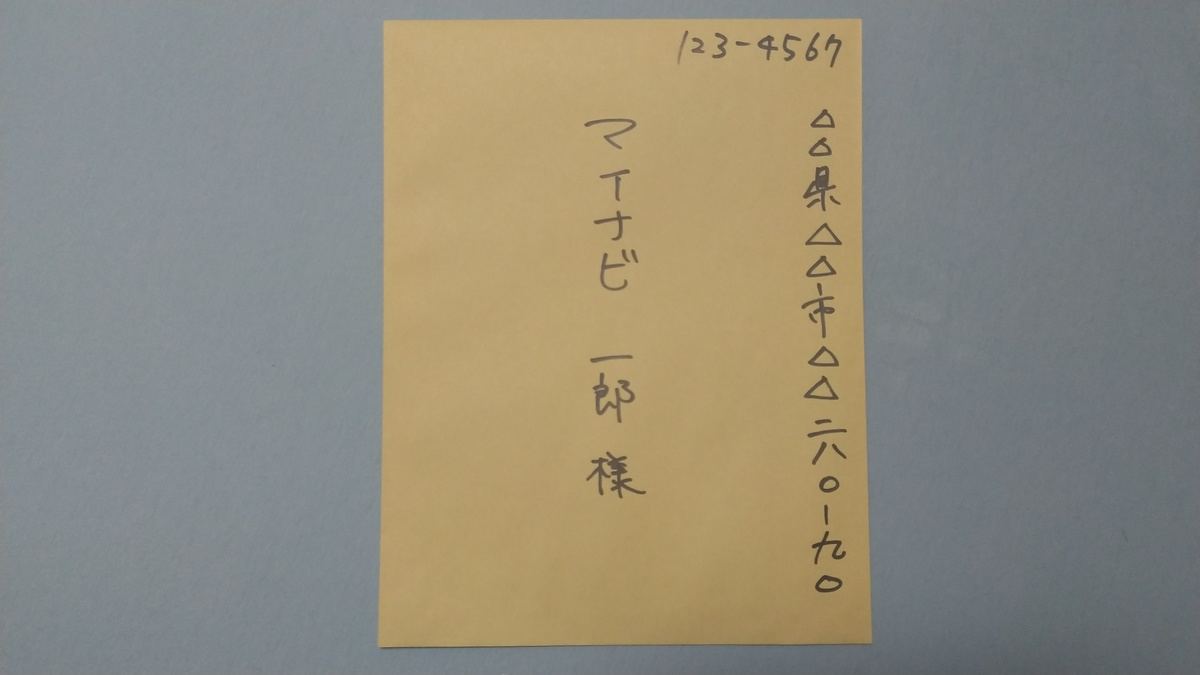 123-4567
△△県△△市△△二八〇-九〇
マイナビ 一郎 様